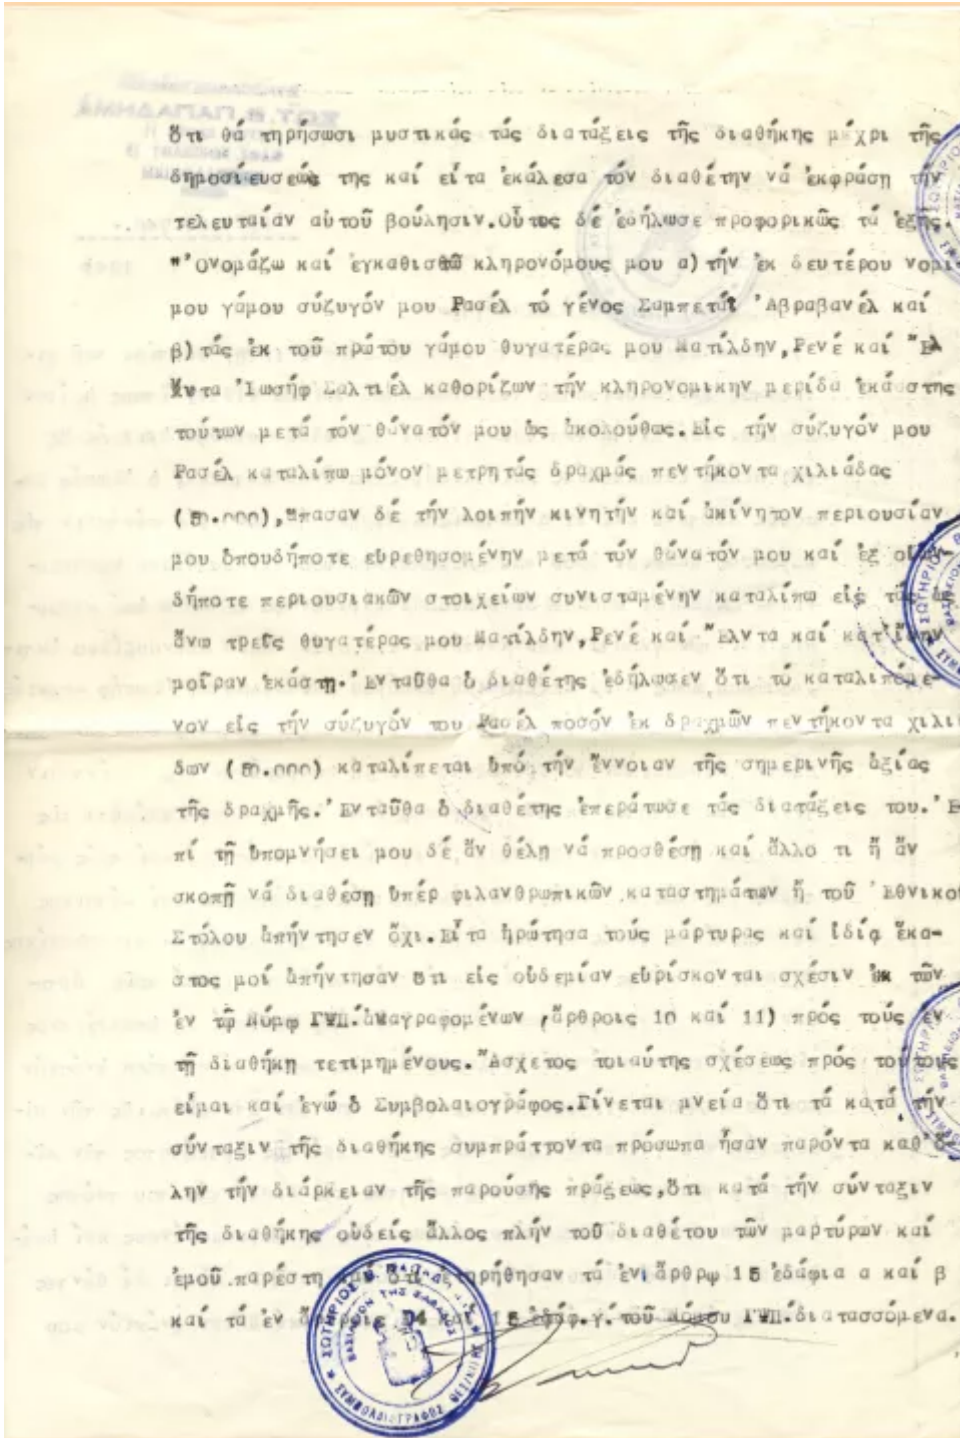 ὅτι θά τηρήσωσι μυστικάς τάς διατάξεις τῆς διαθήκης μέχρι τῆς
δημοσιεύσεώς της καί εἶτα ἐκάλεσα τόν διαθέτην νά ἐκφράσῃ τήν
τελευταίαν αὐτοῦ βούλησιν.Οὗτος δέ ἐδήλωσε προφορικῶς τά ἑξῆς.
"Ὀνομάζω καί ἐγκαθιστῶ κληρονόμους μου α)τήν ἐκ δευτέρου νομί
μου γάμου σύζυγόν μου Ρασέλ τό γένος Σαμπετάϊ Ἀβραβανέλ καί
β)τάς ἐκ τοῦ πρώτου γάμου θυγατέρας μου Ματίλδην,Ρενέ καί Ἔλ
ντα Ἰωσήφ Σαλτιέλ καθορίζων τήν κληρονομικήν μερίδα ἑκάστης
τούτων μετά τόν θάνατόν μου ὡς ἀκολούθως.Εἰς τήν σύζυγόν μου
Ρασέλ καταλίπω μόνον μετρητάς δραχμάς πεντήκοντα χιλιάδας
(50.000),ἅπασαν δέ τήν λοιπήν κινητήν καί ἀκίνητον περιουσίαν
μου ὁπουδήποτε εὑρεθησομένην μετά τόν θάνατόν μου καί ἐξ οἱων-
δήποτε περιουσιακῶν στοιχείων συνισταμένην καταλίπω εἰς τάς
ἄνω τρεῖς θυγατέρας μου Ματίλδην,Ρενέ καί Ἔλντα καί κατ'ἴσην
μοῖραν ἑκάστῃ.Ἐνταῦθα ὁ διαθέτης ἐδήλωσεν ὅτι τό καταλιπόμε-
νον εἰς τήν σύζυγόν του Ρασέλ ποσόν ἐκ δραχμῶν πεντήκοντα χιλιά
δων (50.000) καταλίπεται ὑπό τήν ἔννοιαν τῆς σημερινῆς ἀξίας
τῆς δραχμῆς.Ἐνταῦθα ὁ διαθέτης ἐπεράτωσε τάς διατάξεις του.Ἐ
πί τῇ ὑπομνήσει μου δέ ἄν θέλῃ νά προσθέσῃ καί ἄλλο τι ἤ ἄν
σκοπῇ νά διαθέσῃ ὑπέρ φιλανθρωπικῶν καταστημάτων ἤ τοῦ Ἐθνικοῦ
Στόλου ἀπήντησεν ὄχι.Εἶτα ἠρώτησα τούς μάρτυρας καί ἰδίᾳ ἕκα-
στος μοί ἀπήντησαν ὅτι εἰς οὐδεμίαν εὑρίσκονται σχέσιν ἐκ τῶν
ἐν τῷ Νόμῳ ΓΨΠ.ἀναγραφομένων ,ἄρθροις 10 καί 11) πρός τούς ἐν
τῇ διαθήκῃ τετιμημένους.Ἄσχετος τοιαύτης σχέσεως πρός τούτους
εἶμαι καί ἐγώ ὁ Συμβολαιογράφος.Γίνεται μνεία ὅτι τά κατά τήν
σύνταξιν τῆς διαθήκης συμπράττοντα πρόσωπα ἦσαν παρόντα καθ'ὅ-
λην τήν διάρκειαν τῆς παρούσης πράξεως,ὅτι κατά τήν σύνταξιν
τῆς διαθήκης οὐδείς ἄλλος πλήν τοῦ διαθέτου τῶν μαρτύρων καί
ἐμοῦ παρέστη καί ὅτι ἐτηρήθησαν τά ἐν ἄρθρῳ 15 ἐδάφια α καί β
καί τά ἐν ἄρθροις 14 καί 15 ἐδάφ.γ.τοῦ Νόμου ΓΨΠ.διατασσόμενα.